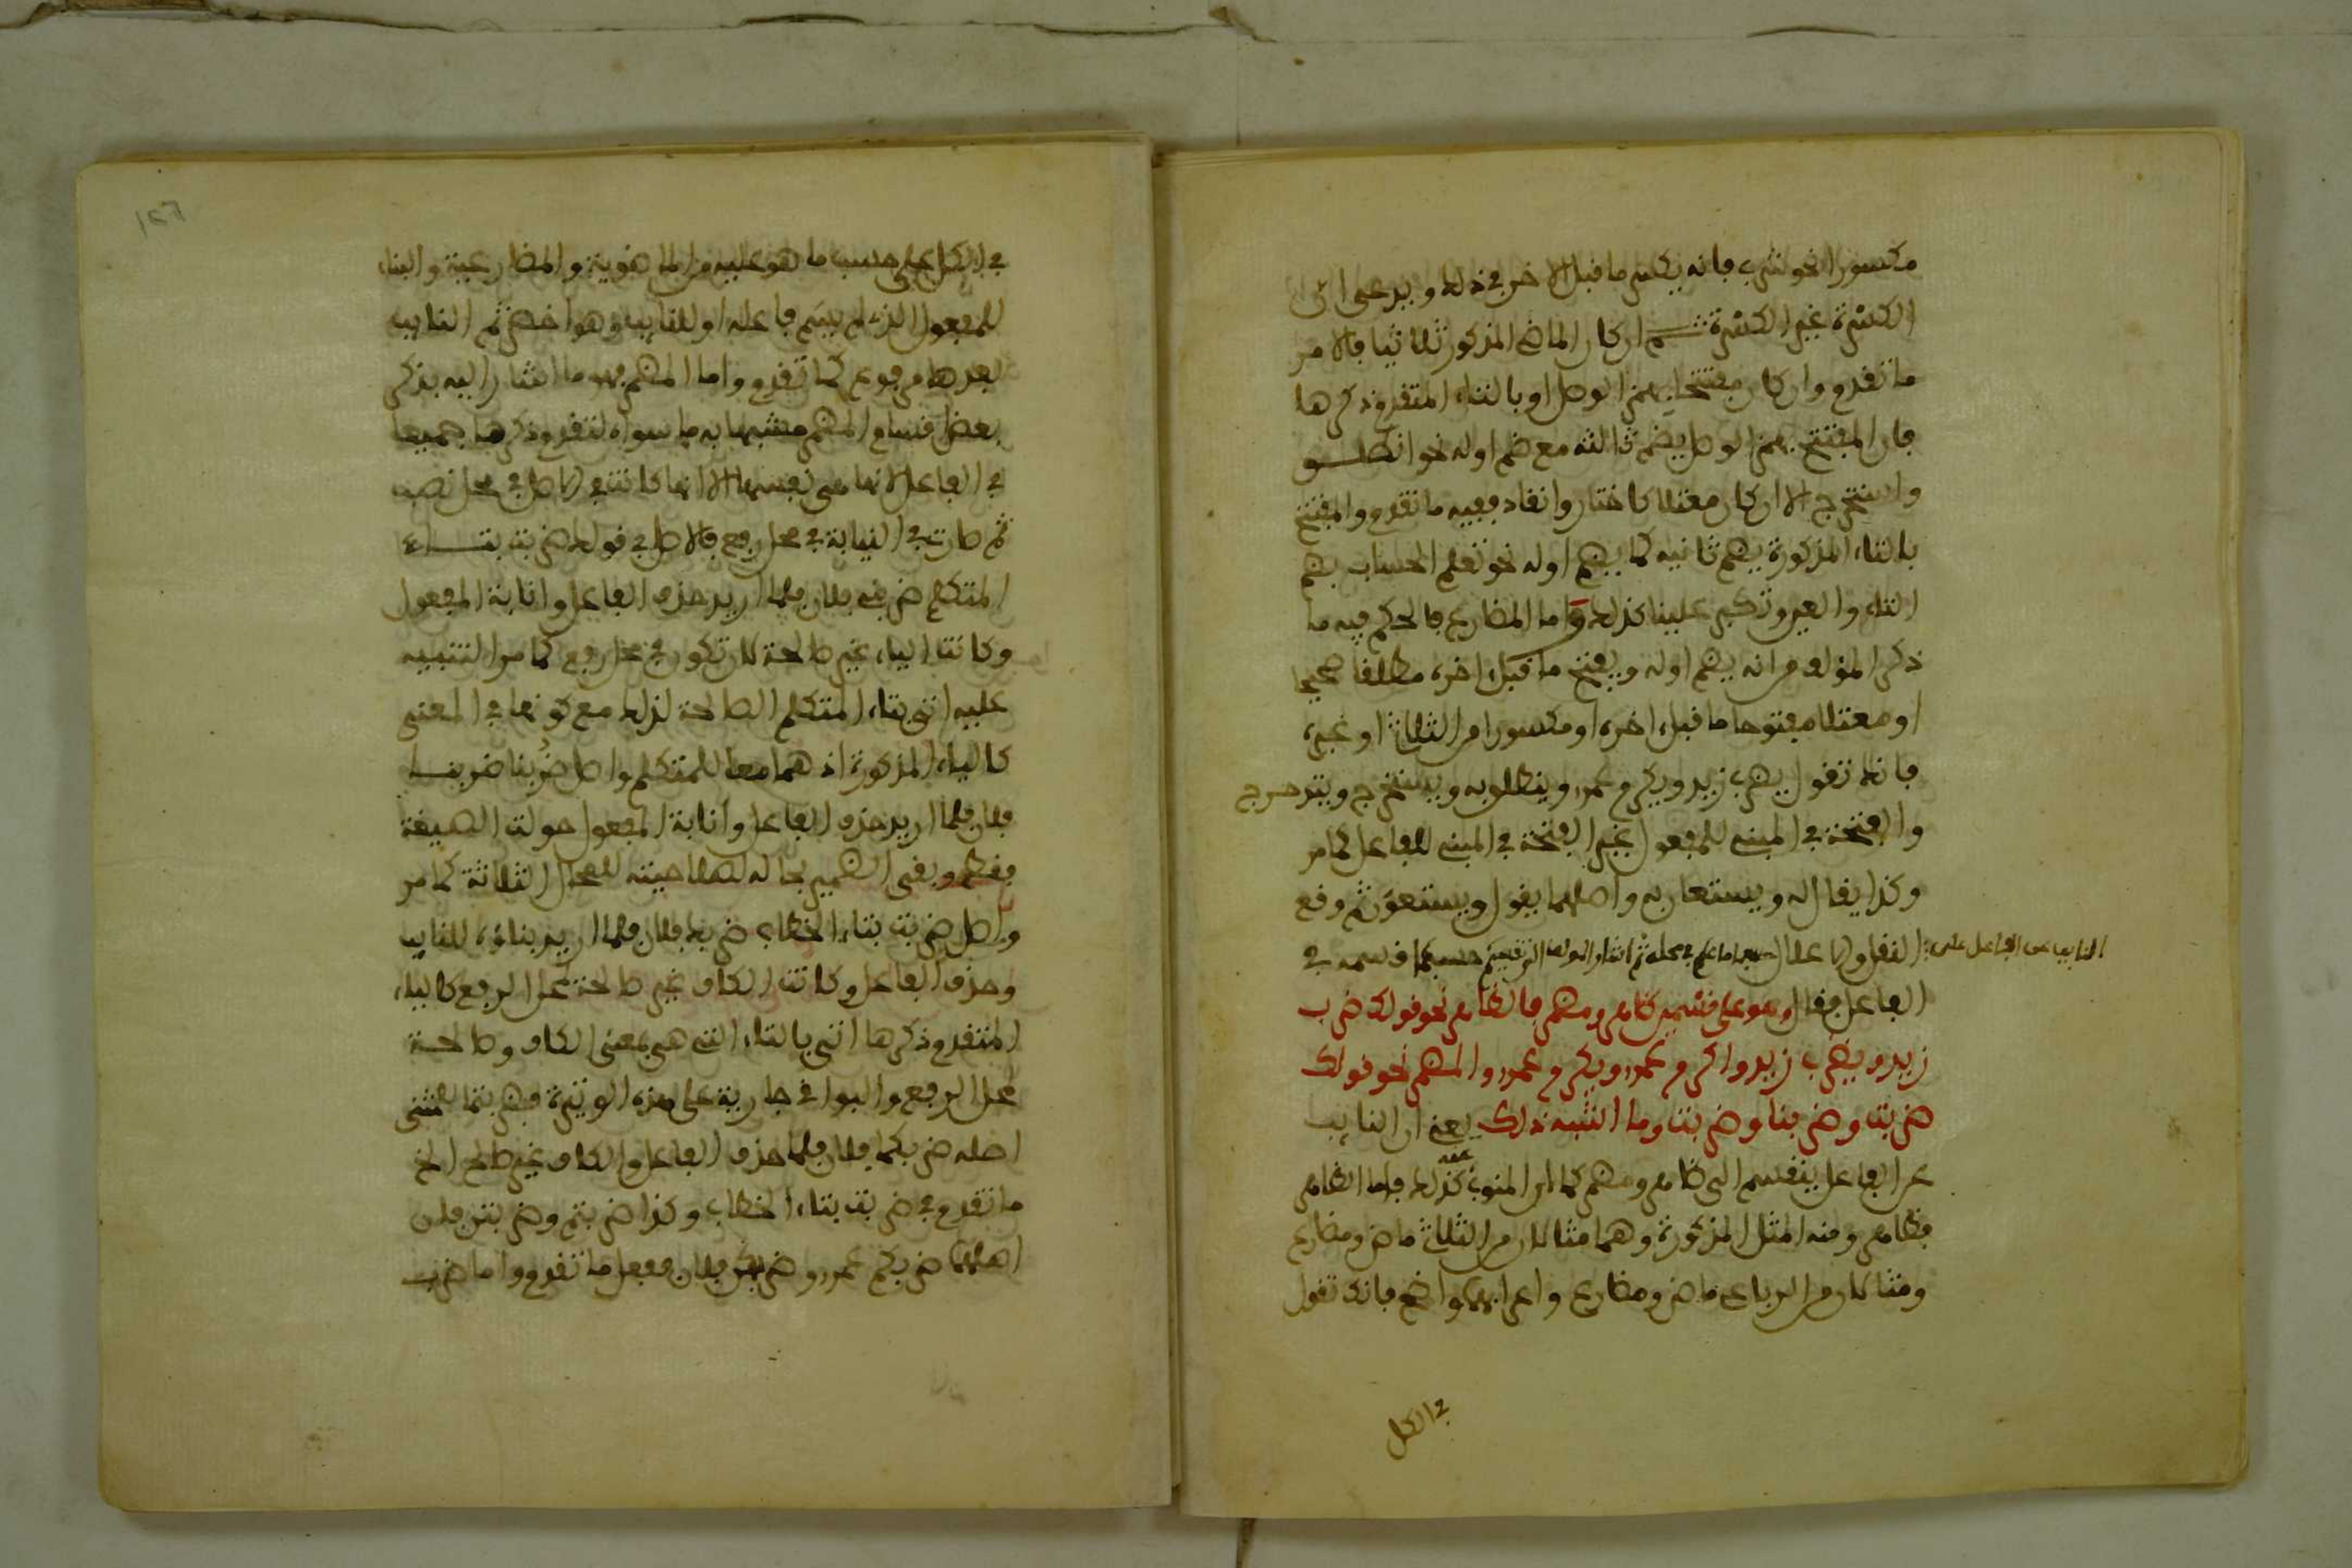 مكسورا نحو شرب فانه يكسر ما قبل الاخر في ذلك ويدعى ان
الكسرة غير الكسرة ثم ان كان الماضي المذكور ثلاثيا فالامر
ما تقدم وان كان مفتتحا بهمز الوصل او بالتاء المتقدم ذكرها
فان المفتتح بهمز الوصل يضم ثالثه مع ضم اوله نحو انطلق
واستخرج الا ان كان معتلا كاختار وانقاد ففيه ما تقدم والمفتتح
بالتاء المذكورة يضم ثانيه كما يضم اوله نحو تعلم الحساب بضم
التاء والعين وتكبر علينا كذلك واما المضارع فالحكم فيه ما
ذكر المؤلف من انه يضم اوله ويفتح ما قبل اخره مطلقا صحيحا
او معتلا مفتوحا ما قبل اخره او مكسورا من الثلاثي او غيره
فانك تقول يضرب زيد ويكرم عمرو وينطلق به ويستخرج ويتدحرج
والفتحة في المبني للمفعول غير الفتحة في المبني للفاعل كما مر
وكذا يقال له ويستعان به واصلهما يقول ويستعون ثم وقع
النقل والاعلال حسبما علم في محله ثم اشار المؤلف الى تقسيم
النايب عن الفاعل على حسبما قسمه في
الفاعل فقال وهو على قسمين ظاهر ومضمر فالظاهر نحو قولك ضرب
زيد ويضرب زيد واكرم عمرو ويكرم عمرو والمضمر نحو قولك
ضربت وضربنا وضربت وما اشبه ذلك يعني ان النايب
عن الفاعل ينقسم الى ظاهر ومضمر كما ان المنوب عنه كذلك فاما الظاهر
فظاهر ومنه المثل المذكورة وهما مثالان من الثلاثي ماض ومضارع
ومثالان من الرباعي ماض ومضارع واعرابها واضح فانك تقول
في الكل
١٢٦
في الكل على حسب ما هو عليه من الماضوية والمضارعية والبناء
للمفعول الذي لم يسم فاعله او للنايب وهو اخصر ثم النايب
بعدها مرفوع كما تقدم واما المضمر فهو ما اشار اليه بذكر
بعض اقسام المضمر مشبها به ما سواه لتقدم ذكرها جميعا
في الفاعل لانها هي نفسها الا انها كانت في الاصل في محل نصب
ثم صارت في النيابة في محل رفع فالاصل في قولك ضربت بتاء
المتكلم ضربني فلان فلما اريد حذف الفاعل وانابة المفعول
وكانت الياء غير صالحة لان تكون في محل رفع كما مر التنبيه
عليه اتي بتاء المتكلم الصالحة لذلك مع كونها في المعنى
كالياء المذكورة اذ هما معا للمتكلم واصل ضربنا ضربنا
فلان فلما اريد حذف الفاعل وانابة المفعول حولت الصيغة
فقط وبقي الضمير بحاله لصلاحيته للمحال الثلاثة كما مر
واصل ضربت بتاء الخطاب ضربك فلان فلما اريد بناؤه للنايب
وحذف الفاعل وكانت الكاف غير صالحة لمحل الرفع كالياء
المتقدم ذكرها اتي بالتاء التي هي بمعنى الكاف وصالحة
لمحل الرفع والبواقي جارية على هذه الوتيرة فضربتما للمثنى
اصله ضربكما فلان فلما حذف الفاعل والكاف غير صالح الخ
ما تقدم في ضربت بتاء الخطاب وكذا ضربتم وضربتن فان
اصلهما ضربكم عمرو وضربكن فلان ففعل ما تقدم واما ضرب